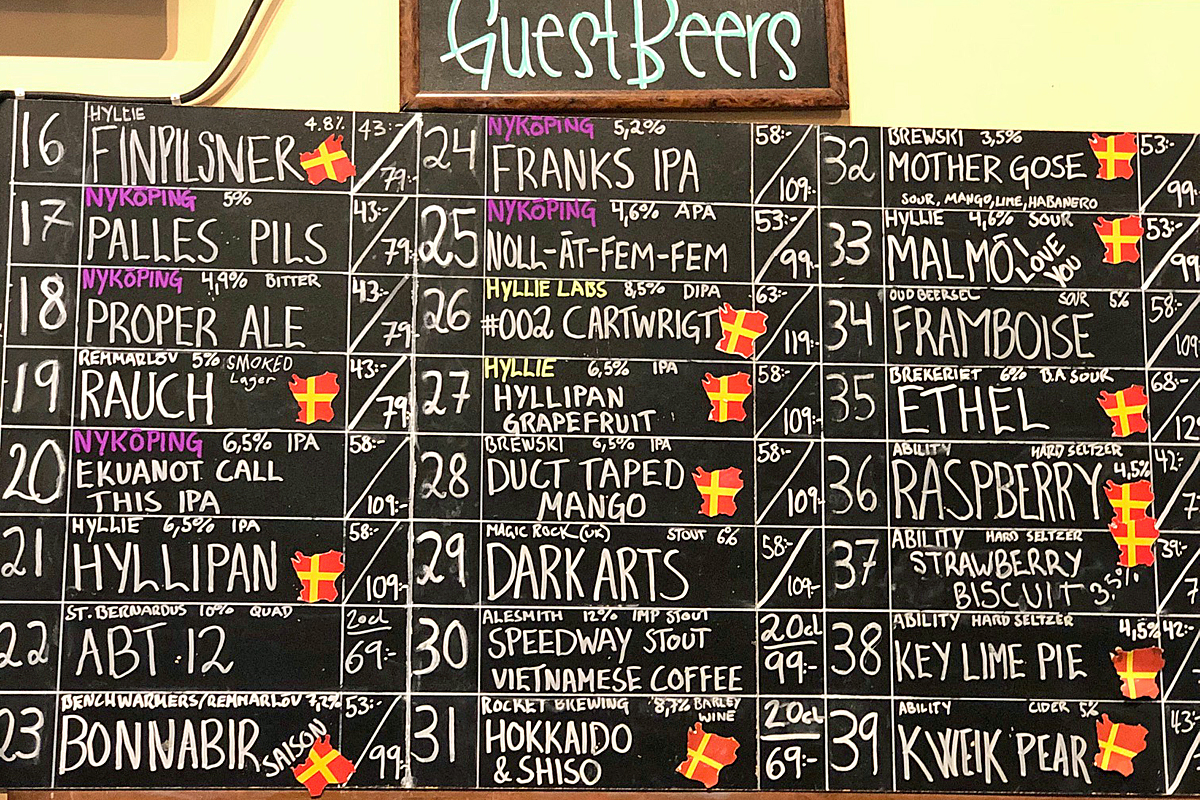 Guest Beers
16 HYLLIE 4.8% 43:-
FINPILSNER 79:-
17 NYKÖPING 5% 43:-
PALLES PILS 79:-
18 NYKÖPING 4,4% BITTER 43:-
PROPER ALE 79:-
19 REMMARLÖV 5% SMOKED Lager 43:-
RAUCH 79:-
20 NYKÖPING 6,5% IPA 58:-
EKUANOT CALL
THIS IPA 109:-
21 HYLLIE 6,5% IPA 58:-
HYLLIPAN 109:-
22 ST. BERNARDUS 10% QUAD 20cl
ABT 12 69:-
23 BENCHWARMERS/REMMARLÖV 7,2% 53:-
BONNABIR SAISON 99:-
24 NYKÖPING 5,2% 58:-
FRANKS IPA 109:-
25 NYKÖPING 4,6% APA 53:-
NOLL-ÅT-FEM-FEM 99:-
26 HYLLIE LABS 8,5% DIPA 63:-
#002 CARTWRIGT 119:-
27 HYLLIE 6,5% IPA 58:-
HYLLIPAN
GRAPEFRUIT 109:-
28 BREWSKI 6,5% IPA 58:-
DUCT TAPED
MANGO 109:-
29 MAGIC ROCK (UK) STOUT 6% 58:-
DARK ARTS 109:-
30 ALESMITH 12% IMP STOUT 20cl
SPEEDWAY STOUT
VIETNAMESE COFFEE 99:-
31 ROCKET BREWING 8,7% BARLEY WINE 20cl
HOKKAIDO
& SHISO 69:-
32 BREWSKI 3,5% 53:-
MOTHER GOSE 99:-
SOUR, MANGO, LIME, HABANERO
33 HYLLIE 4,6% SOUR 53:-
MALMÖ LOVE YOU 99
34 OUD BEERSEL SOUR 5% 58:-
FRAMBOISE 109
35 BREKERIET 6% B.A SOUR 68:-
ETHEL 12
36 ABILITY HARD SELTZER 42:-
RASPBERRY 4,5% 7
37 ABILITY HARD SELTZER 39:-
STRAWBERRY
BISCUIT 3,5% 7
38 ABILITY HARD SELTZER 4,5% 42:-
KEY LIME PIE
39 ABILITY CIDER 5% 43:-
KWEIK PEAR